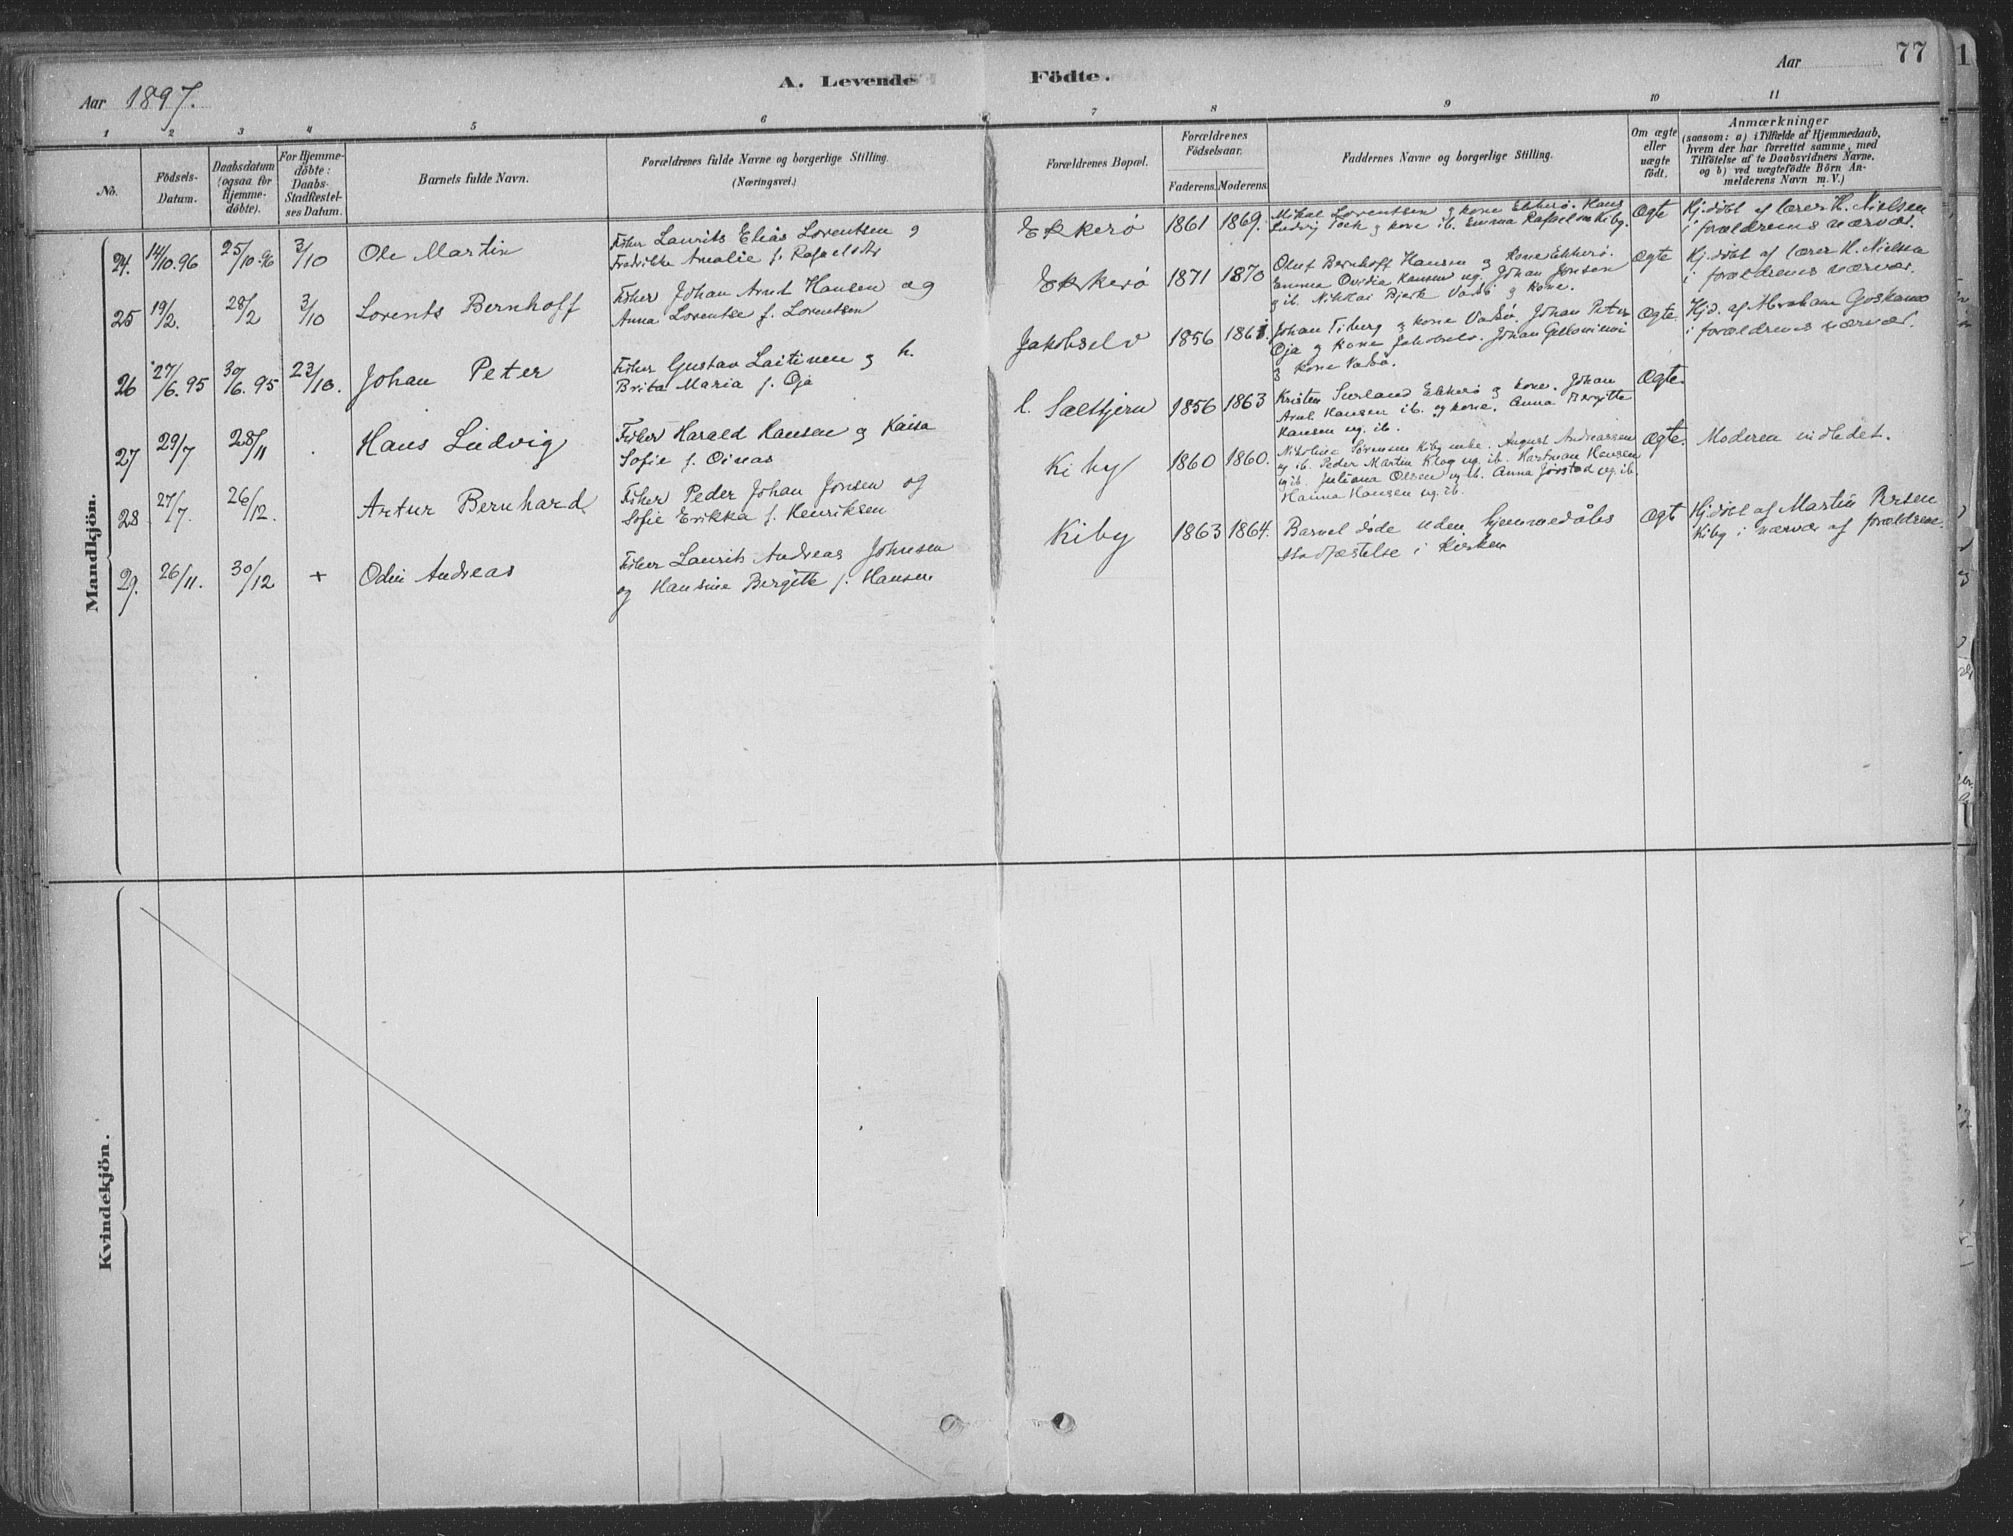 77
Aar 1897.
A. Levende Födte.
Aar
1 2 3 4 5 6 7 8 9 10 11
No.
Födsels-
Datum.
Daabsdatum
(ogsaa for
Hjemme-
döbte).
For Hjemme-
döbte:
Daabs-
Stadfæstel-
ses Datum.
Barnets fulde Navn.
Forældrenes fulde Navne og borgerlige Stilling.
(Næringsvei.)
Forældrenes Bopæl.
Forældrenes
Födselsaar.
Faderens. Moderens.
Faddernes Navne og borgerlige Stilling.
Om ægte
eller
uægte
födt.
Anmærkninger
(saasom: a) i Tilfælde af Hjemmedaab,
hvem der har forrettet samme, med
Tilföielse af to Daabsvidners Navne,
og b) ved uægtefödte Börn An-
melderens Navn m. V.)
Mandkjön.
24. 14/10.96 25/10.96 3/10 Ole Martin
Fisker Laurits Elias Lorentsen og
Fredrikke Amalie f. Rafaelsdtr
Ekkerö 1861 1869.
Mikal Lorentsen og kone Ekkerö. Hans
Ludvig og kone ib. Emma Rafaelsen Kiby.
Ægte
Hj.döbt af lærer H. Nielsen
i forældrenes nærvær.
25 19/2. 28/2 3/10 Lorents Bernhoff
Fisker Johan Arnt Hansen og
Anna Lorentse f. Lorentsen
Ekkerö 1871 1870
Oluf Bernhoff Hansen og kone Ekkerö.
Emma Ovidia Hansen ug. Johan Jensen
ug ib. Nikolai Bjerk Vadsö og kone.
Ægte
Hj.döbt af lærer H. Nielsen
i forældrenes nærvær.
26 27/6.95 30/6.95 23/10. Johan Peter
Fisker Gustav Laitinen og h.
Brita Maria f. Oja
Jakobselv 1856 1861.
Johan Fiberg og kone Vadsö. Johan Peter
Oja og kone Jakobselv. Johan
og kone Vadsö.
Ægte.
Hjd. af Abraham
i forældrenes nærvær.
27 29/7 28/11 . Hans Ludvig
Fisker Harald Hansen og Kaisa
Sofie f. Oinas
l. Saltjern 1856 1863
Kristen Ekkerö og kone. Johan
Arnt Hansen ib. og kone. Anna Bergitte
Hansen ug. ib.
Ægte.
28 27/7. 26/12. Artur Bernhard
Fisker Peder Johan Jensen og
Sofie Erikka f. Henriksen
Kiby 1860 1860.
Nikoline Sörensen Kiby enke. August Andreassen
ug ib. Peder Martin Klog ug. ib. Hartman Hansen
ug ib. Juliana Olsen ug ib. Anna Jörstad ug. ib.
Hanna Hansen ug. ib.
Ægte.
Moderen indledet.
29. 26/11. 30/12 + Odin Andreas
Fisker Laurits Andreas Johnsen
og Hansine Bergitte f. Hansen
Kiby 1863 1864.
Barnet döde uden hjemmedåbs
stadfæstelse i Kirken
Ægt
Hj.döbt af Martin Persen
Kiby i nærvær af forældrene.
Kvindekjön.